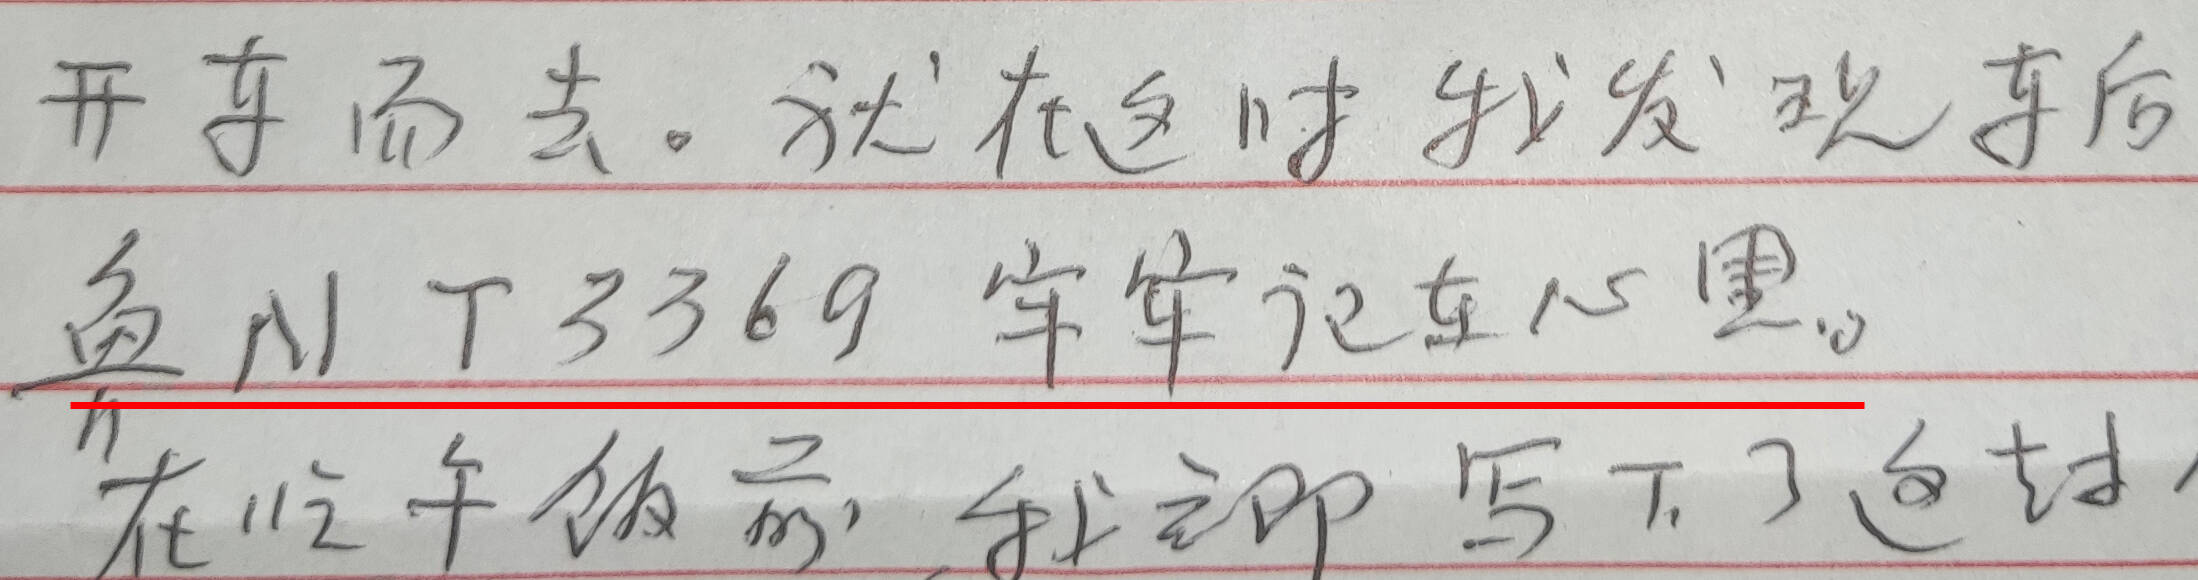 开车而去。就在这时我发现车后
鲁NT3369牢牢记在心里。
在吃午饭前,我立即写下了这封